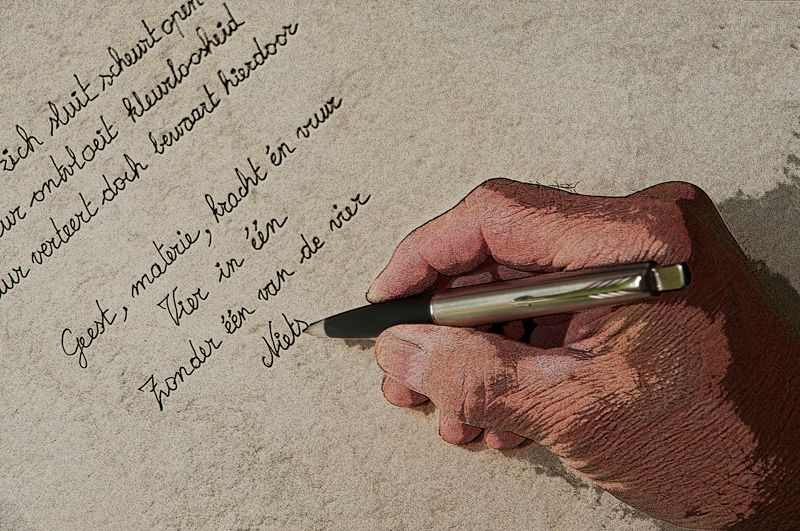 zich sluit scheurt open
ur ontvloeit kleurloosheid
uur verteert doch bewaart hierdoor
Geest, materie, kracht én vuur
Vier in één
Zonder één van de vier
Niets